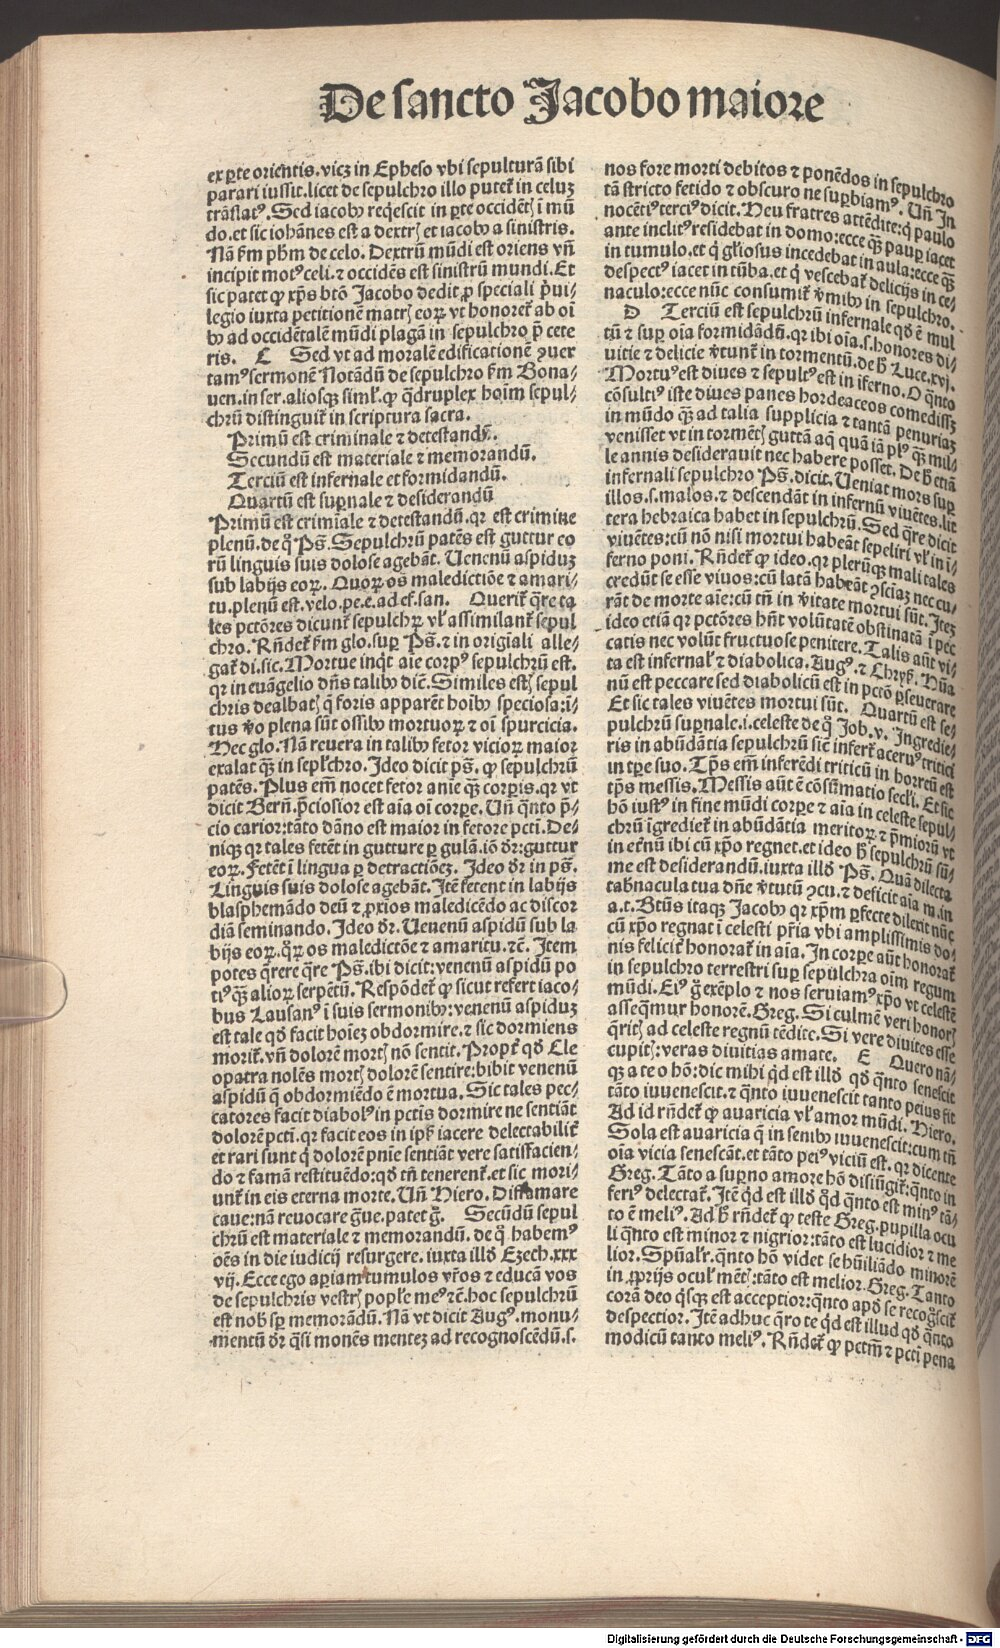 De sancto Jacobo maiore
ex ꝑte orientis. vicꝫ in Epheso vbi sepulturā sibi
parari iussit. licet de sepulchro illo putet̄ in celuꝫ
trāslatꝰ. Sed iacobꝰ req̇escit in ꝑte occidētꝭ ī mū
do. et sic iohānes est a dextrꝭ et iacobꝰ a sinistris.
Nā ẜm pħm de celo. Dextrū mūdi est oriens vn̄
incipit motꝰ celi. ⁊ occidēs est sinistrū mundi. Et
sic patet ꝙ xp̄s btō Jacobo dedit ꝓ speciali p̄ui⸗
legio iuxta petitionē matrꝭ eoꝝ vt honoret̄ ab oī
bꝰ ad occidētalē mūdi plagā in sepulchro p̄ cete
ris. C Sed vt ad moralē edificationē ꝯuer
tamꝰ sermonē Notādū de sepulchro ẜm Bona⸗
uen. in ser. aliosqꝫ simł. ꝙ q̈druplex hoīm sepul⸗
chrū distinguit̄ in scriptura sacra.
Primū est criminale ⁊ detestandū.
Secundū est materiale ⁊ memorandū.
Terciū est infernale et formidandū.
Quartū est suꝑnale ⁊ desiderandū
Primū est crimīale ⁊ detestandū. qr est crimine
plenū. de q̊ Ps̄. Sepulchrū patēs est guttur eo
rū linguis suis dolose agebāt. Uenenū aspiduꝫ
sub labijs eoꝝ. Quoꝝ os maledictiōe ⁊ amari⸗
tu. plenū est. velo. pe. e. ad ef. san. Querit̄ q̄re ta
les pctōres dicunt̄ sepulchꝝ vł assimilant̄ sepul
chro. Rn̄det̄ ẜm glo. suꝑ Ps̄. ⁊ in origīali alle⸗
gat̄ di. sic. Mortue inq̇t aīe corpꝰ sepulchrū est.
qr in euāgelio dn̄s talibꝰ dic̄. Similes estꝭ sepul
chris dealbatꝭ q̄ foris apparēt hoībꝰ speciosa: ī⸗
tus v̊o plena sūt ossibꝰ mortuoꝝ ⁊ oī spurcicia.
Hec glo. Nā reuera in talibꝰ fetor vicioꝝ maior
exalat q̄ꝫ in sepłchro. Ideo dicit ps̄. ꝙ sepulchrū
patēs. Plus em̄ nocet fetor anīe q̄ꝫ corꝑis. qr vt
dicit Bern̄. p̄ciosior est aīa oī corꝑe. Un̄ q̇nto p̄⸗
cio carior: tāto dāno est maior in fetore pcti. De⸗
niqꝫ qr tales fetēt in gutture ꝑ gulā. iō dr̄: guttur
eoꝝ. Fetēt ī lingua ꝑ detractiōeꝫ. Ideo dr̄ in ps̄.
Linguis suis dolose agebāt. Itē fetent in labijs
blasphemādo deū ⁊ ꝓxīos maledicēdo ac discor
diā seminando. Ideo dr̄. Uenenū aspidū sub la
bijs eoꝝ. q̊ꝝ os maledictōe ⁊ amaritu. ⁊c̄. Item
potes q̄rere q̄re Ps̄. ibi dicit: venenū aspidū po
tiꝰ q̄ꝫ alioꝝ serpētū. Respōdet̄ ꝙ sicut refert iaco⸗
bus Lausanꝰ ī suis sermonibꝰ: venenū aspiduꝫ
est tale qd̄ facit hoīeꝫ obdormire. ⁊ sic dormiens
morit̄. vn̄ dolorē mortꝭ nō sentit. Propt̄ qd̄ Cle
opatra nolēs mortꝭ dolorē sentire: bibit venenū
aspidū q̄ obdormiēdo ē mortua. Sic tales pec⸗
catores facit diabolꝰ in pctis dormire ne sentiāt
dolorē pcti. qr facit eos in ip̄s iacere delectabilit̄
et rari sunt q̇ dolorē pn̄ie sentiāt vere satisfacien⸗
do ⁊ famā restituēdo: qd̄ tn̄ tenerent̄. et sic mori⸗
unt̄ in eis eterna morte. Un̄ Hiero. Diffamare
caue: nā reuocare g̊ue. patet g̊. Secūdū sepul
chrū est materiale ⁊ memorandū. de q̊ habemꝰ
oēs in die iudicij resurgere. iuxta illđ Ezech. xxx
vij. Ecce ego aꝑiam tumulos vr̄os ⁊ educā vos
de sepulchris vestrꝭ popule meꝰ ⁊c̄. hoc sepulchrū
est nob̄ sꝑ memorādū. Nā vt dicit Augꝰ. monu⸗
mentū dr̄ q̈si monēs menteꝫ ad recognoscēdū. s.
nos fore morti debitos ⁊ ponēdos in sepulchro
tā stricto fetido ⁊ obscuro ne suꝑbiamꝰ. Un̄ In
nocētiꝰ terciꝰ dicit. Heu fratres attēdite: q̇ paulo
ante inclitꝰ residebat in domo: ecce q̄ꝫ paup̄ iacet
in tumulo. et q̇ gl̄iosus incedebat in aula: ecce q̄ꝫ
despectꝰ iacet in tūba. et q̇ vescebat̄ delicijs in ce⸗
naculo: ecce nūc consumit̄ v̊mibꝰ in sepulchro.
D Terciū est sepulchrū infernale qđ ē mul
tū ⁊ suꝑ oīa formidādū. qr ibi oīa. s. honores di⸗
uitie ⁊ delicie v̊tunt̄ in tormentū. de h̄ Luce. xvj.
Mortuꝰ est diues ⁊ sepultꝰ est in iferno. O q̇nto
cōsultiꝰ iste diues panes hordeaceos comedissꝫ
in mūdo q̄ꝫ ad talia supplicia ⁊ tantā penuriaꝫ
venisset vt in tormētꝭ guttā aq̄ quā iā plꝰ q̄ꝫ mil⸗
le annis desiderauit nec habere posset. De h̄ etiā
infernali sepulchro Ps̄. dicit. Ueniat mors suꝑ
illos. s. malos. ⁊ descendāt in infernū viuētes. lit
tera hebraica habet in sepulchrū. Sed q̄re dicit
viuētes: cū nō nisi mortui habeāt sepeliri vł in i⸗
ferno poni. Rn̄det̄ ꝙ ideo. qr plerūqꝫ mali tales
credūt se esse viuos: cū latā habeāt ꝯsciaꝫ nec cu⸗
rāt de morte aīe: cū tn̄ in v̊itate mortui sūt. Iteꝫ
ideo etiā qr pctōres hn̄t volūtatē obstinatā ī pec
catis nec volūt fructuose penitere. Talis aūt vi⸗
ta est infernał ⁊ diabolica. Augꝰ. ⁊ Chryẜ. Hūa
nū est peccare sed diabolicū est in pctō ꝑseuerare
Et sic tales viuētes mortui sūt. Quartū est se⸗
pulchrū suꝑnale. i. celeste de q̊ Job. v. Ingredie⸗
ris in abūdātia sepulchrū sic̄ infert̄ aceruꝰ tritici
in tꝑe suo. Tp̄s em̄ inferēdi triticū in horreū est
tp̄s messis. Messis aūt ē cōsūmatio secłi. Et sic
hō iustꝰ in fine mūdi corꝑe ⁊ aīa in celeste sepul⸗
chrū ingrediet̄ in abūdātia meritoꝝ ⁊ p̄mioꝝ vt
in et̄nū ibi cū xp̄o regnet. et ideo h̄ sepulchrū sū⸗
me est desiderandū. iuxta illđ Ps̄. Quā dilecta
tab̄nacula tua dn̄e v̊tutū ꝯcu. ⁊ deficit aīa m. in
a. t. Btūs itaqꝫ Jacobꝰ qr xp̄m ꝑfecte dilexit nūc
cū xp̄o regnat ī celesti pr̄ia vbi amplissimis do⸗
nis felicit̄ honorat̄ in aīa. In corꝑe aūt honorat̄
in sepulchro terrestri suꝑ sepulchra oīm regum
mūdi. Eiꝰ g̊ exēplo ⁊ nos seruiamꝰ xp̄o vt celestē
asseq̄mur honorē. Greg. Si culmē veri honorꝭ
q̄ritꝭ ad celeste regnū tēdite. Si vere diuites esse
cupitꝭ: veras diuitias amate. E Quero nā⸗
qꝫ a te o hō: dic mihi q̇d est illđ qđ q̇nto senescit
tāto iuuenescit. ⁊ q̇nto iuuenescit tanto peius fit
Ad id rn̄det̄ ꝙ auaricia vł amor mūdi. Hiero.
Sola est auaricia q̄ in senibꝰ iuuenescit: cum tn̄
oīa vicia senescāt. et tāto peiꝰ viciū est. qr dicente
Greg. Tāto a suꝑno amore hō disiūgit̄: q̇nto in
feriꝰ delectat̄. Itē q̇d est illđ qđ q̇nto est minꝰ tā⸗
to ē meliꝰ. Ad h̄ rn̄det̄ ꝙ teste Greg. pupilla ocu
li q̇nto est minor ⁊ nigrior: tāto est lucidior ⁊ me
lior. Spūalr̄. q̇nto hō videt se hūiliādo minorē
in ꝓprijs oculꝭ mētꝭ: tāto est melior. Greg. Tanto
corā deo q̇sqꝫ est acceptior: q̇nto apđ se recog̊scit̄
despectior. Itē adhuc q̄ro te q̇d est illud qđ q̇nto
modicū tanto meliꝰ. Rn̄det̄ ꝙ pctm̄ ⁊ pcti pena
Digitalisierung gefördert durch die Deutsche Forschungsgemeinschaft - DFG